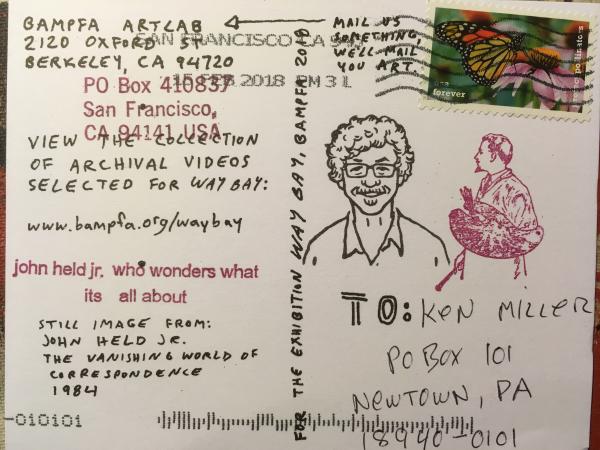 BAMPFA ARTLAB
2120 OXFORD ST
BERKELEY, CA 94720
SAN FRANCISCO CA
15 FEB 2018 PM 3 L
PO Box 410837
San Francisco,
CA 94141 USA
VIEW THE COLLECTION
OF ARCHIVAL VIDEOS
SELECTED FOR WAY BAY:
www.bampfa.org/waybay
john held jr. who wonders what
its all about
STILL IMAGE FROM:
JOHN HELD JR.
THE VANISHING WORLD OF
CORRESPONDENCE
1984
-010101
FOR THE EXHIBITION WAY BAY, BAMPFA 2018
MAIL US
SOMETHING
WE'LL MAIL
YOU ART.
forever
pollinators
TO: KEN MILLER
PO BOX 101
NEWTOWN, PA
18940-0101